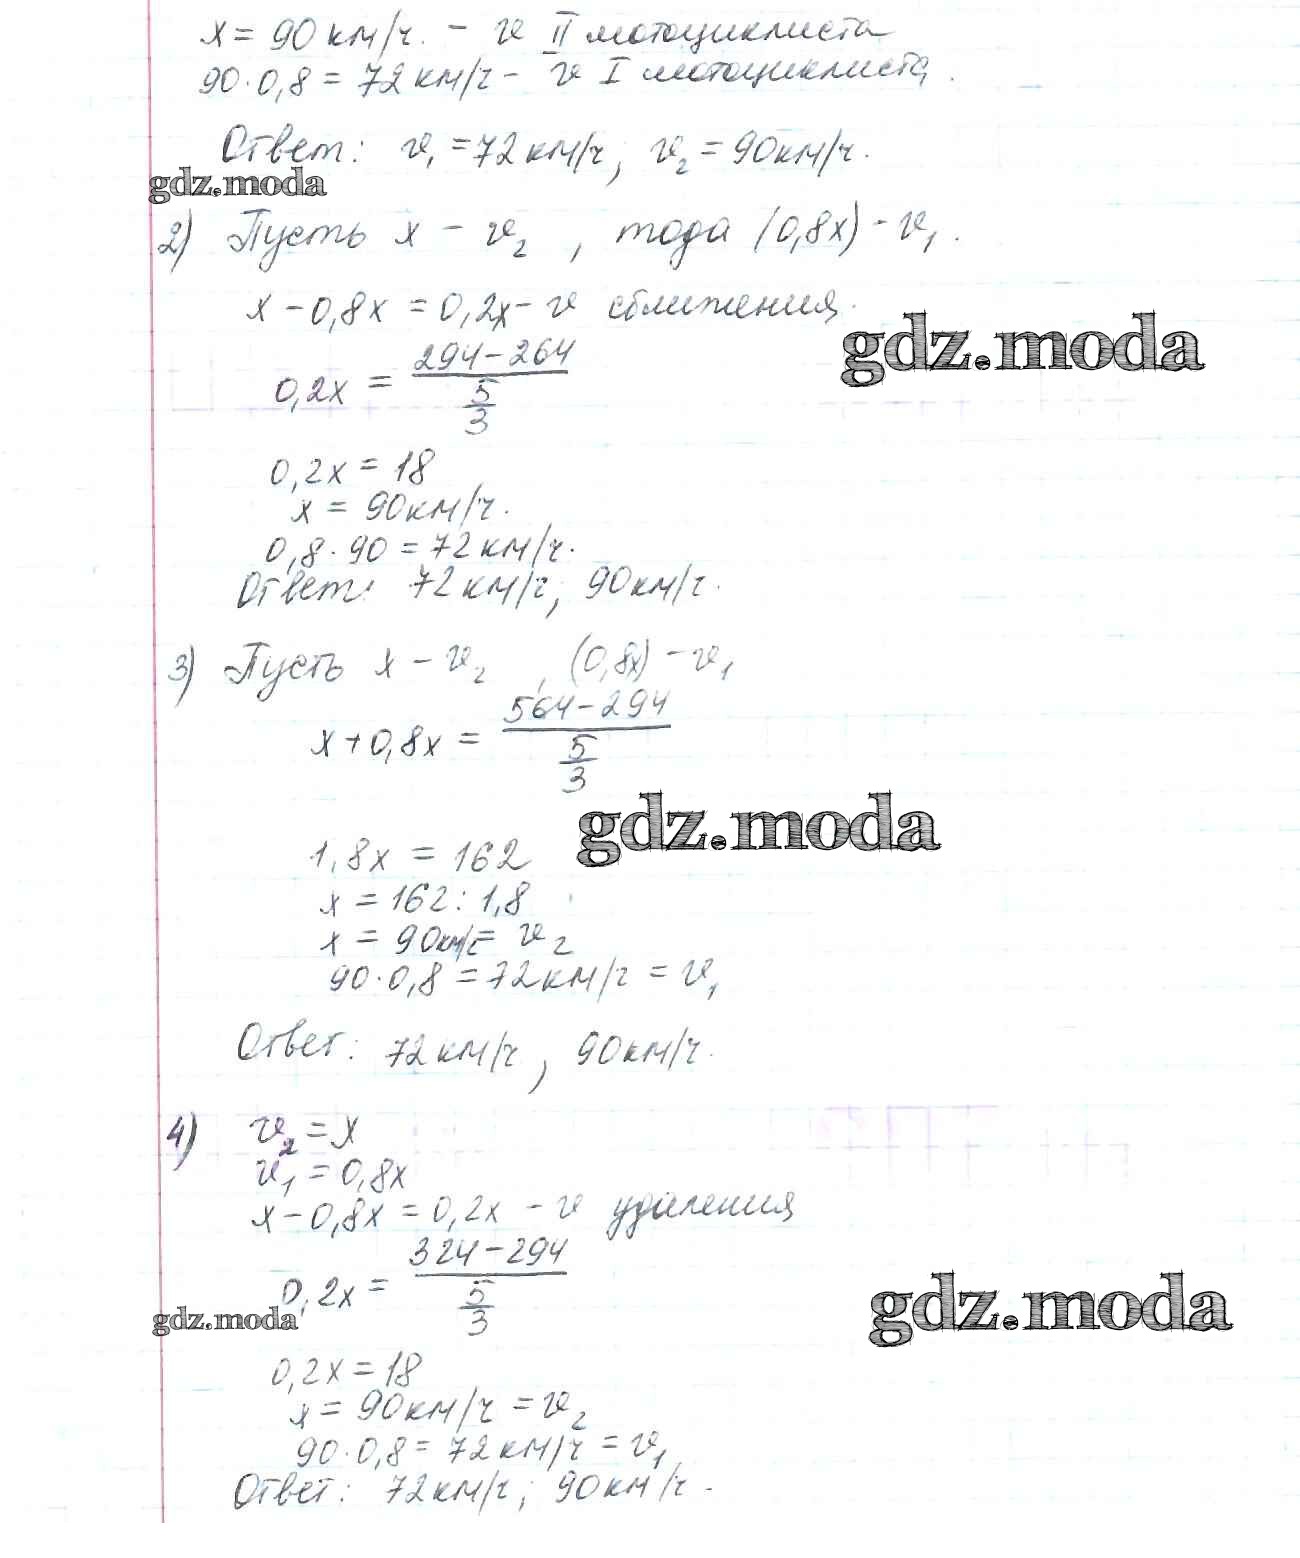 x = 90 км/ч. - v II мотоциклиста
90·0,8 = 72 км/ч - v I мотоциклиста.
Ответ: v₁ = 72 км/ч, v₂ = 90 км/ч.
gdz.moda
2) Пусть x - v₂, тода (0,8x) - v₁.
x - 0,8x = 0,2x - v сближения.
gdz.moda
0,2x = (294 - 264) / (5/3)
0,2x = 18
x = 90 км/ч.
0,8·90 = 72 км/ч.
Ответ: 72 км/ч, 90 км/ч.
3) Пусть x - v₂, (0,8x) - v₁
x + 0,8x = (564 - 294) / (5/3)
gdz.moda
1,8x = 162
x = 162 : 1,8
x = 90 км/ч = v₂
90·0,8 = 72 км/ч = v₁
Ответ: 72 км/ч, 90 км/ч.
4) v₂ = x
v₁ = 0,8x
x - 0,8x = 0,2x - v удаления
0,2x = (324 - 294) / (5/3)
gdz.moda
gdz.moda
0,2x = 18
x = 90 км/ч = v₂
90·0,8 = 72 км/ч = v₁
Ответ: 72 км/ч; 90 км/ч.